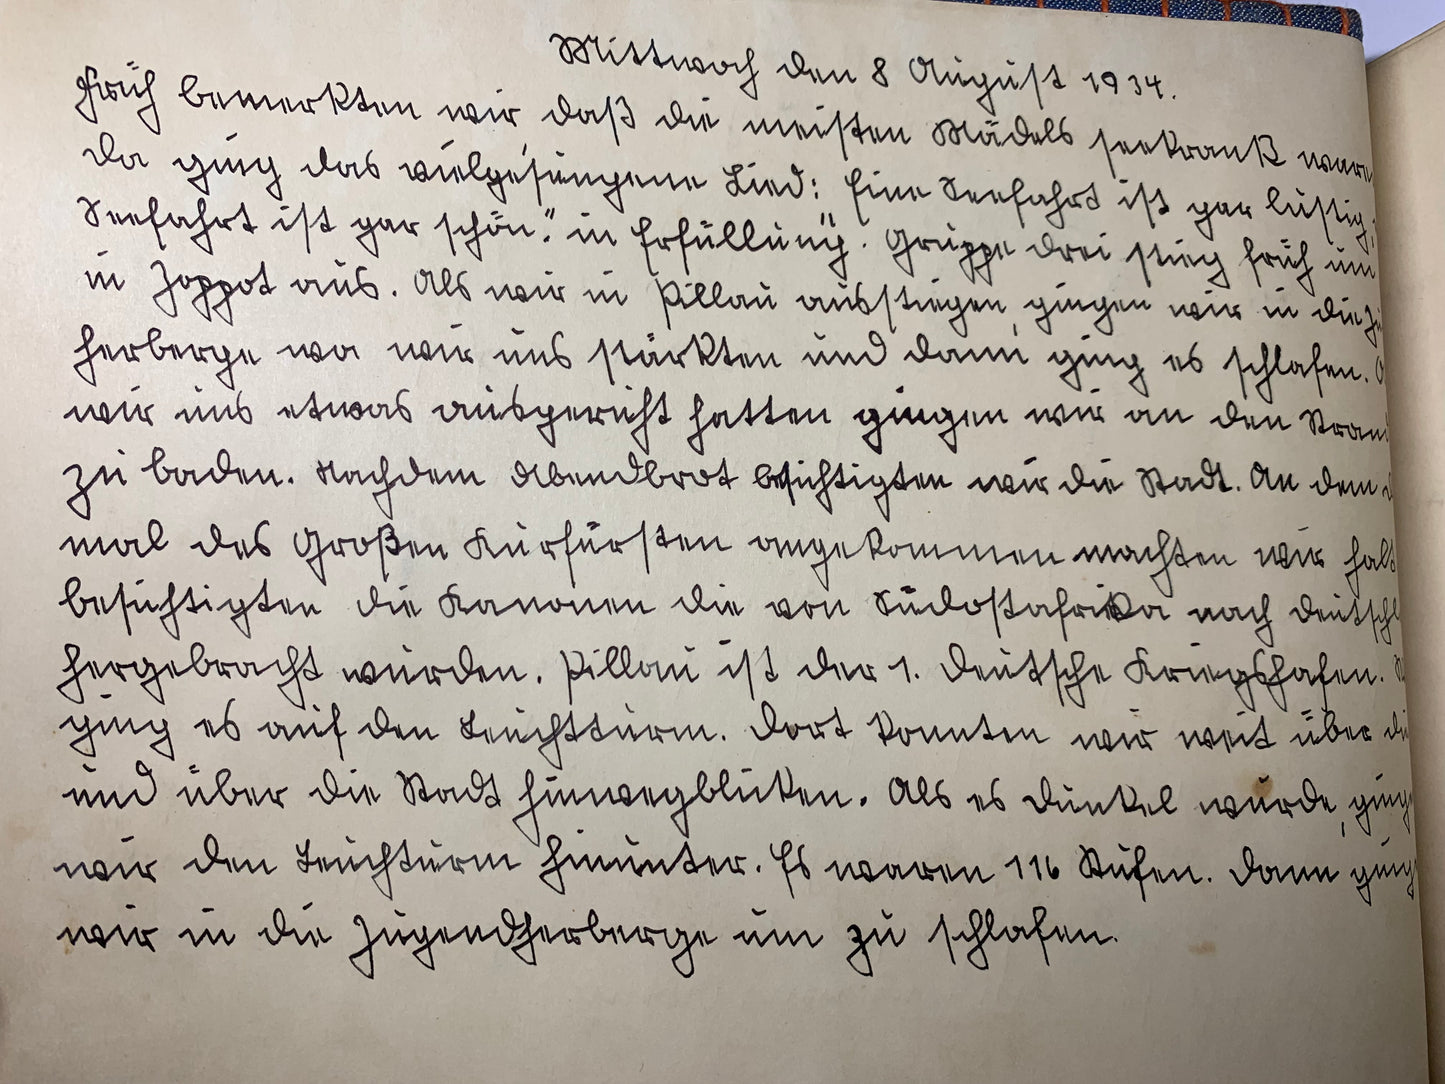 Mittwoch den 8 August 1934.
Früh bemerkten wir, daß die meisten Mädels seekrank ware
Da ging das vielgesungene Lied: „Eine Seefahrt ist gar lustig,
Seefahrt ist gar schön." in Erfüllung. Gruppe drei stieg früh um
in Zoppot aus. Als wir in Pillau ausstiegen, gingen wir in die Ju
herberge wo wir uns stärkten und dann ging es schlafen. A
wir uns etwas ausgericht hatten gingen wir an den Stran
zu baden. Nachdem Abendbrot besichtigten wir die Stadt. An dem
mal des Großen Kurfürsten angekommen machten wir halt
besichtigten die Kanonen die von Südostafrika nach Deutschl
hergebracht wurden. Pillau ist der 1. deutsche Kriegshafen.
ging es auf den Leuchtturm. Dort konnten wir weit über di
und über die Stadt hinwegblicken. Als es dunkel wurde, ging
wir den Leuchturm hinunter. Es waren 116 Stufen. Dann ging
wir in die Jugendherberge um zu schlafen.